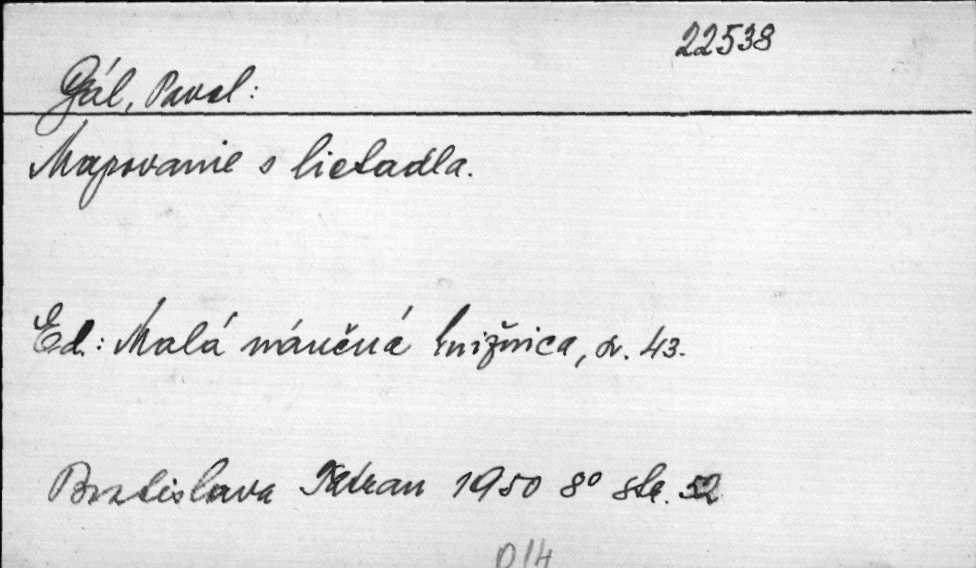 22538
Gál, Pavel:
Mapovanie s lietadla.
Ed.: Malá náučná knižnica, sv. 43.
Bratislava Tatran 1950 8° str. 52
D14